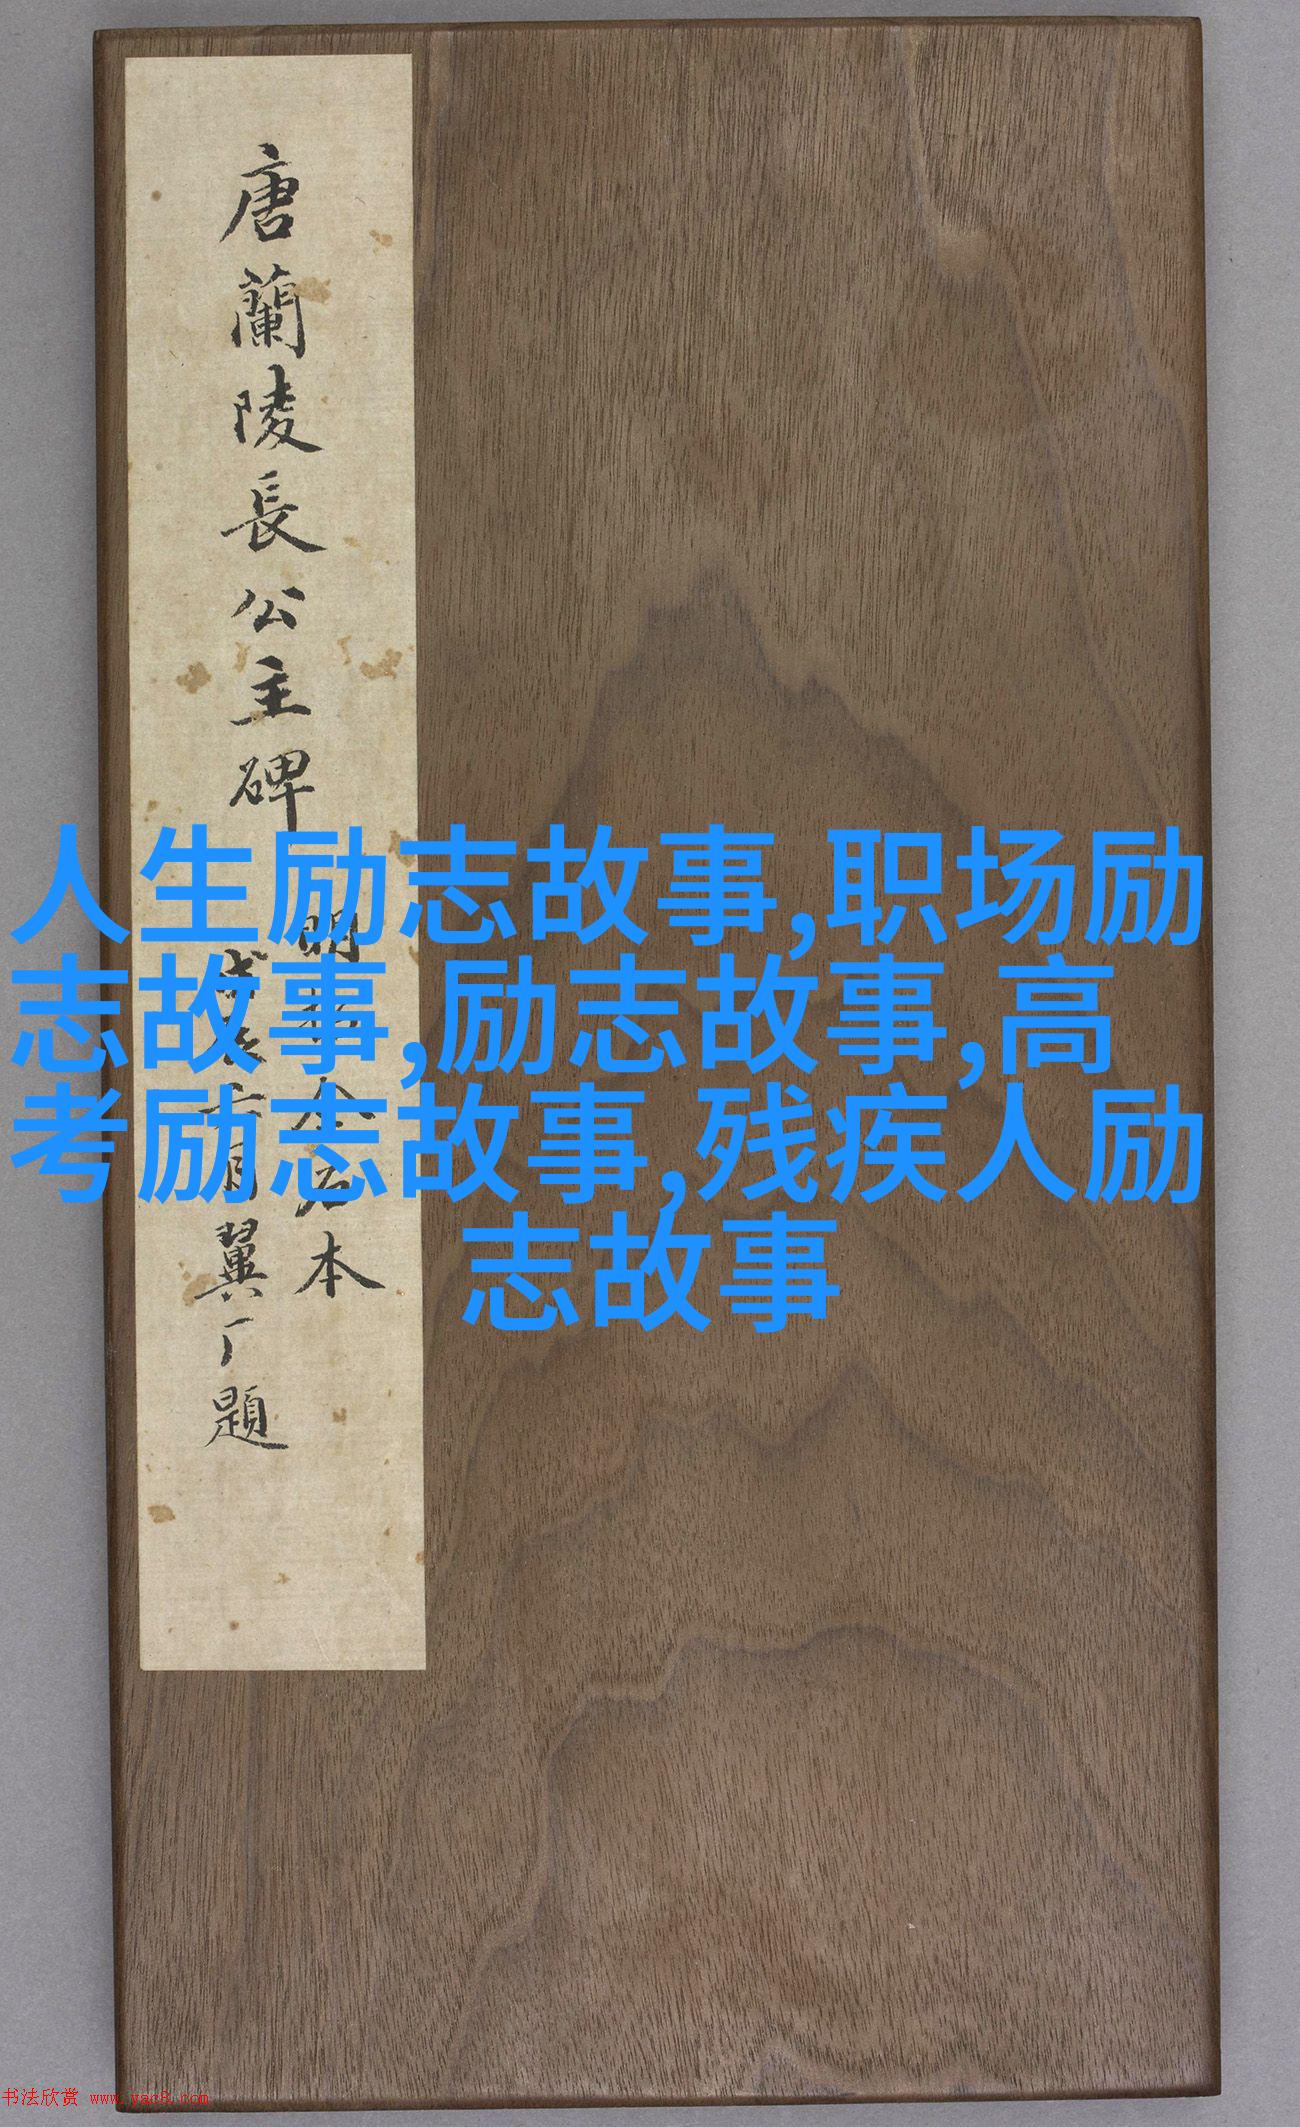 唐蘭陵長公主碑
明拓全石本
戊辰六月翼厂題
人生励志故事,职场励
志故事,励志故事,高
考励志故事,残疾人励
志故事
书法欣赏 www.yac8.com